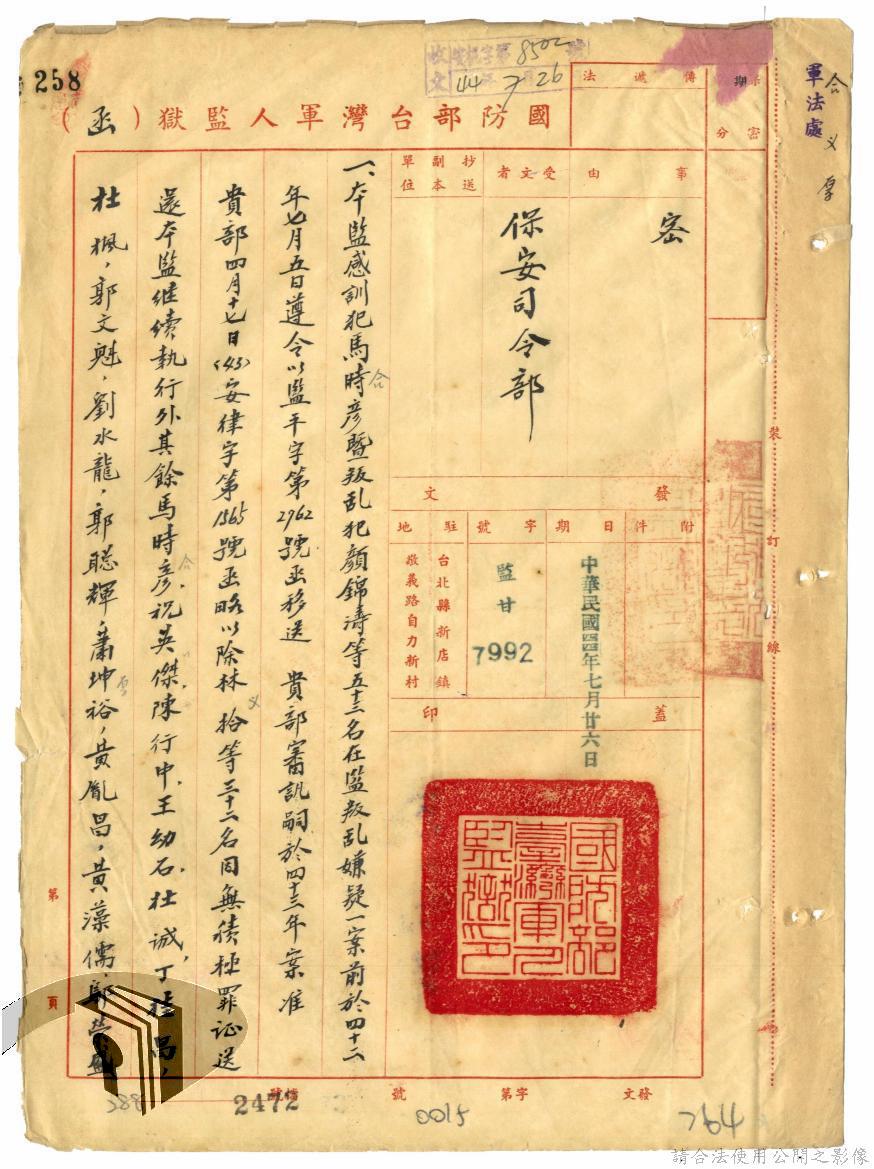 258
收文 安机字第8502號
44 7 26
軍法處
國防部台灣軍人監獄（函）
法遞傳
密
事由
受文者
保安司令部
抄送副本單位
發文
附件
日期
中華民國四四年七月廿六日
字號
監甘
7992
駐地
台北縣新店鎮
敬義路自力新村
蓋印
國防部
臺灣軍人
監獄印
裝訂線
一、本監感訓犯馬時彥暨叛乱犯顏錦濤等五十三名在監叛乱嫌疑一案前於四十二
年七月五日遵令以監平字第2962號函移送　貴部審訊嗣於四十三年案准
貴部四月十七日(43)安律字第1565號函略以除林　拾等三十二名因無積極罪证送
還本監継續執行外其餘馬時彥，祝英傑，陳行中，王幼石，杜　誠，丁　昌，
杜　楓，郭文魁，劉水龍，郭聰輝，蕭坤裕，黃胤昌，黃藻儒，郭　盛
第　頁
發文　字第　號
檔號
2472
288
0015
請合法使用公開之影像